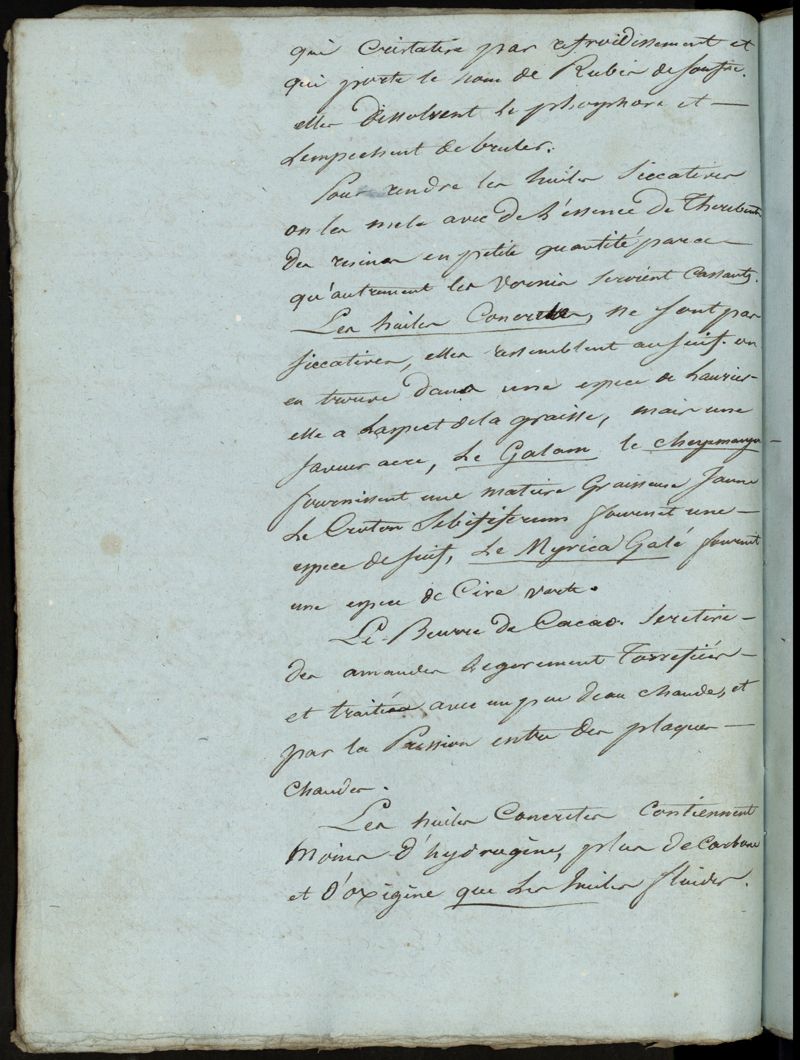 qui Cristalise par refroidissement et
qui porte le nom de Rubis de soufre.
elles dissolvent le phosphore et —
L'empechent de bruler.
Pour rendre les huiles siccatives
on les mele avec de L'essence de Therebent.
des resines en petite quantité parce —
qu'autrement les vernis seroient Cassants.
Les huiles Concretes, ne sont pas
siccatives, elles ressemblent au suif. on
en trouve dans une espece de Laurier
elle a L'aspect de la graisse, mais une
saveur acre, Le Galam le —
fournissent une matiere Graisseuse Jaune
Le Croton Sebififerum fournit une —
espece de suif, Le Myrica Galé fournit
une espece de Cire verte.
Le Beurre de Cacao. se retire —
des amandes legerement Torrefiées —
et traitées avec un peu d'eau chaude, et
par la Pression entre des plaques —
chaudes.
Les huiles Concretes Contiennent
Moins d'hydrogène, plus de Carbone
et d'oxigène que Les huiles fluides.